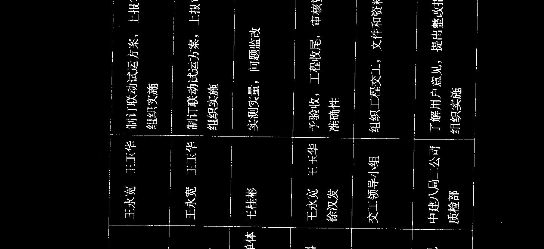 制订联动试运方案，上报
组织实施
王永宽 王玉华
制订联动试运方案，上报
组织实施
王永宽 王玉华
实测实量，问题监改
王桂彬
单体
予验收，工程收尾，审核
准确性
王永宽 王玉华
徐汉发
组织工程交工，文件和资料
交工领导小组
了解用户意见，提出整改
组织实施
中建八局二公司
质检部